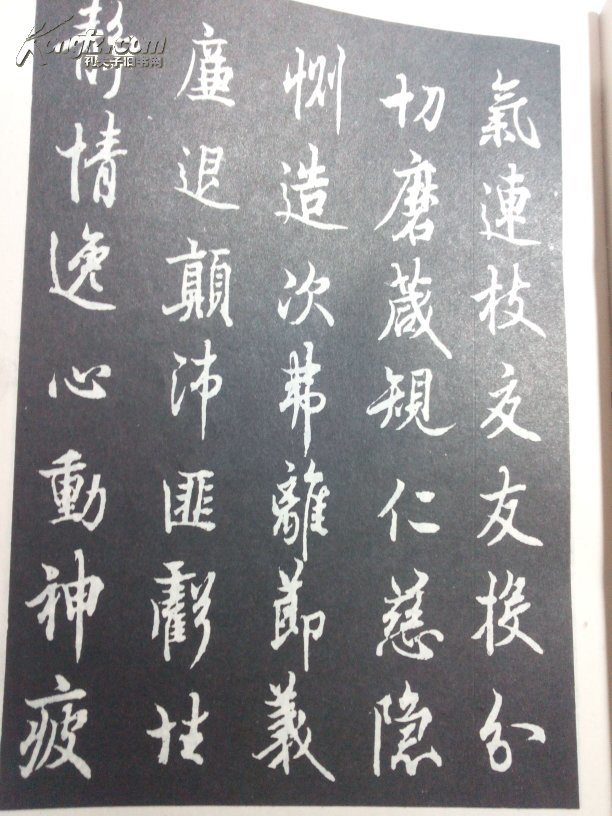 氣連枝交友投分
切磨箴規仁慈隐
惻造次弗離節義
廉退顛沛匪虧性
靜情逸心動神疲
Kongfz.com
孔夫子旧书网